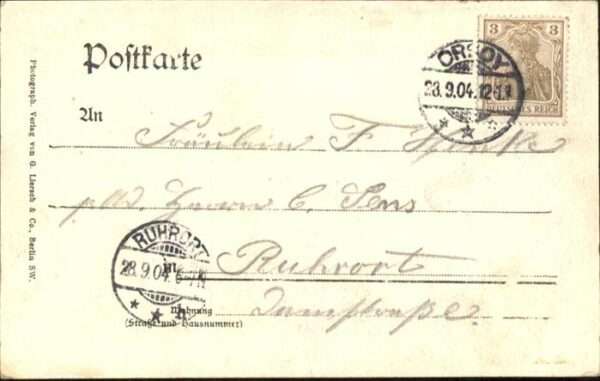 Postkarte
3
DEUTSCHES REICH
ORSOY
28.9.04. 12-1N
An
Fräulein F.
p. Ad. Herrn C. Sens
RUHRORT
28.9.04. 6-7N
in Ruhrort
Wohnung
(Straße und Hausnummer)
Photograph. Verlag von G. Liersch & Co., Berlin SW.